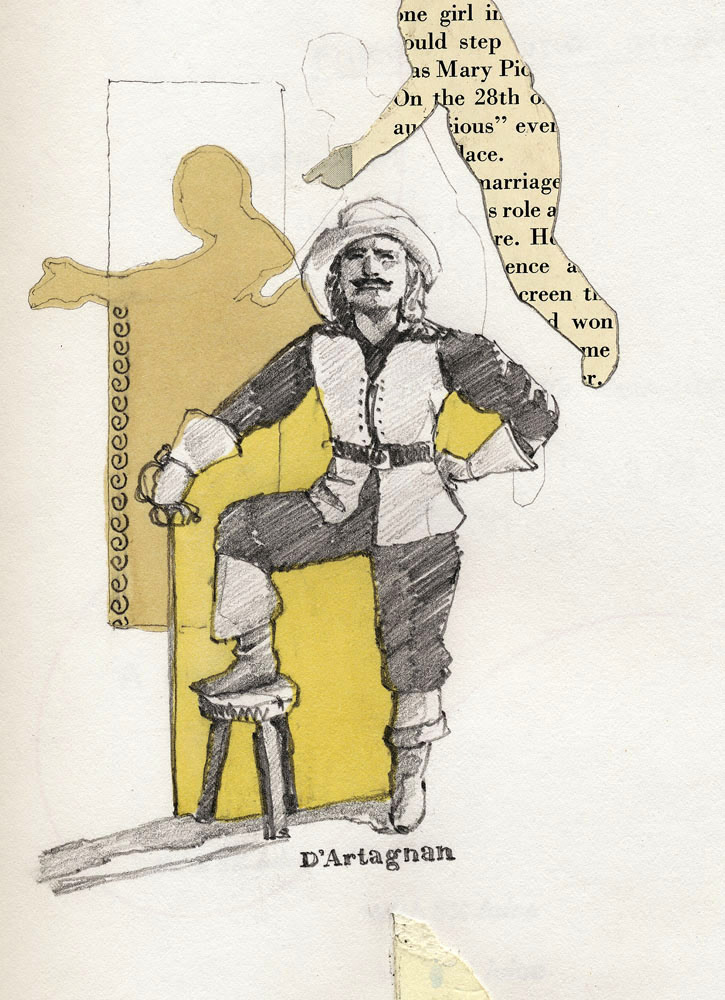 one girl in
ould step
as Mary Pic
On the 28th o
au ious” ever
lace.
narriage
s role a
re. He
ence a
creen th
d won
me
r.
D'Artagnan